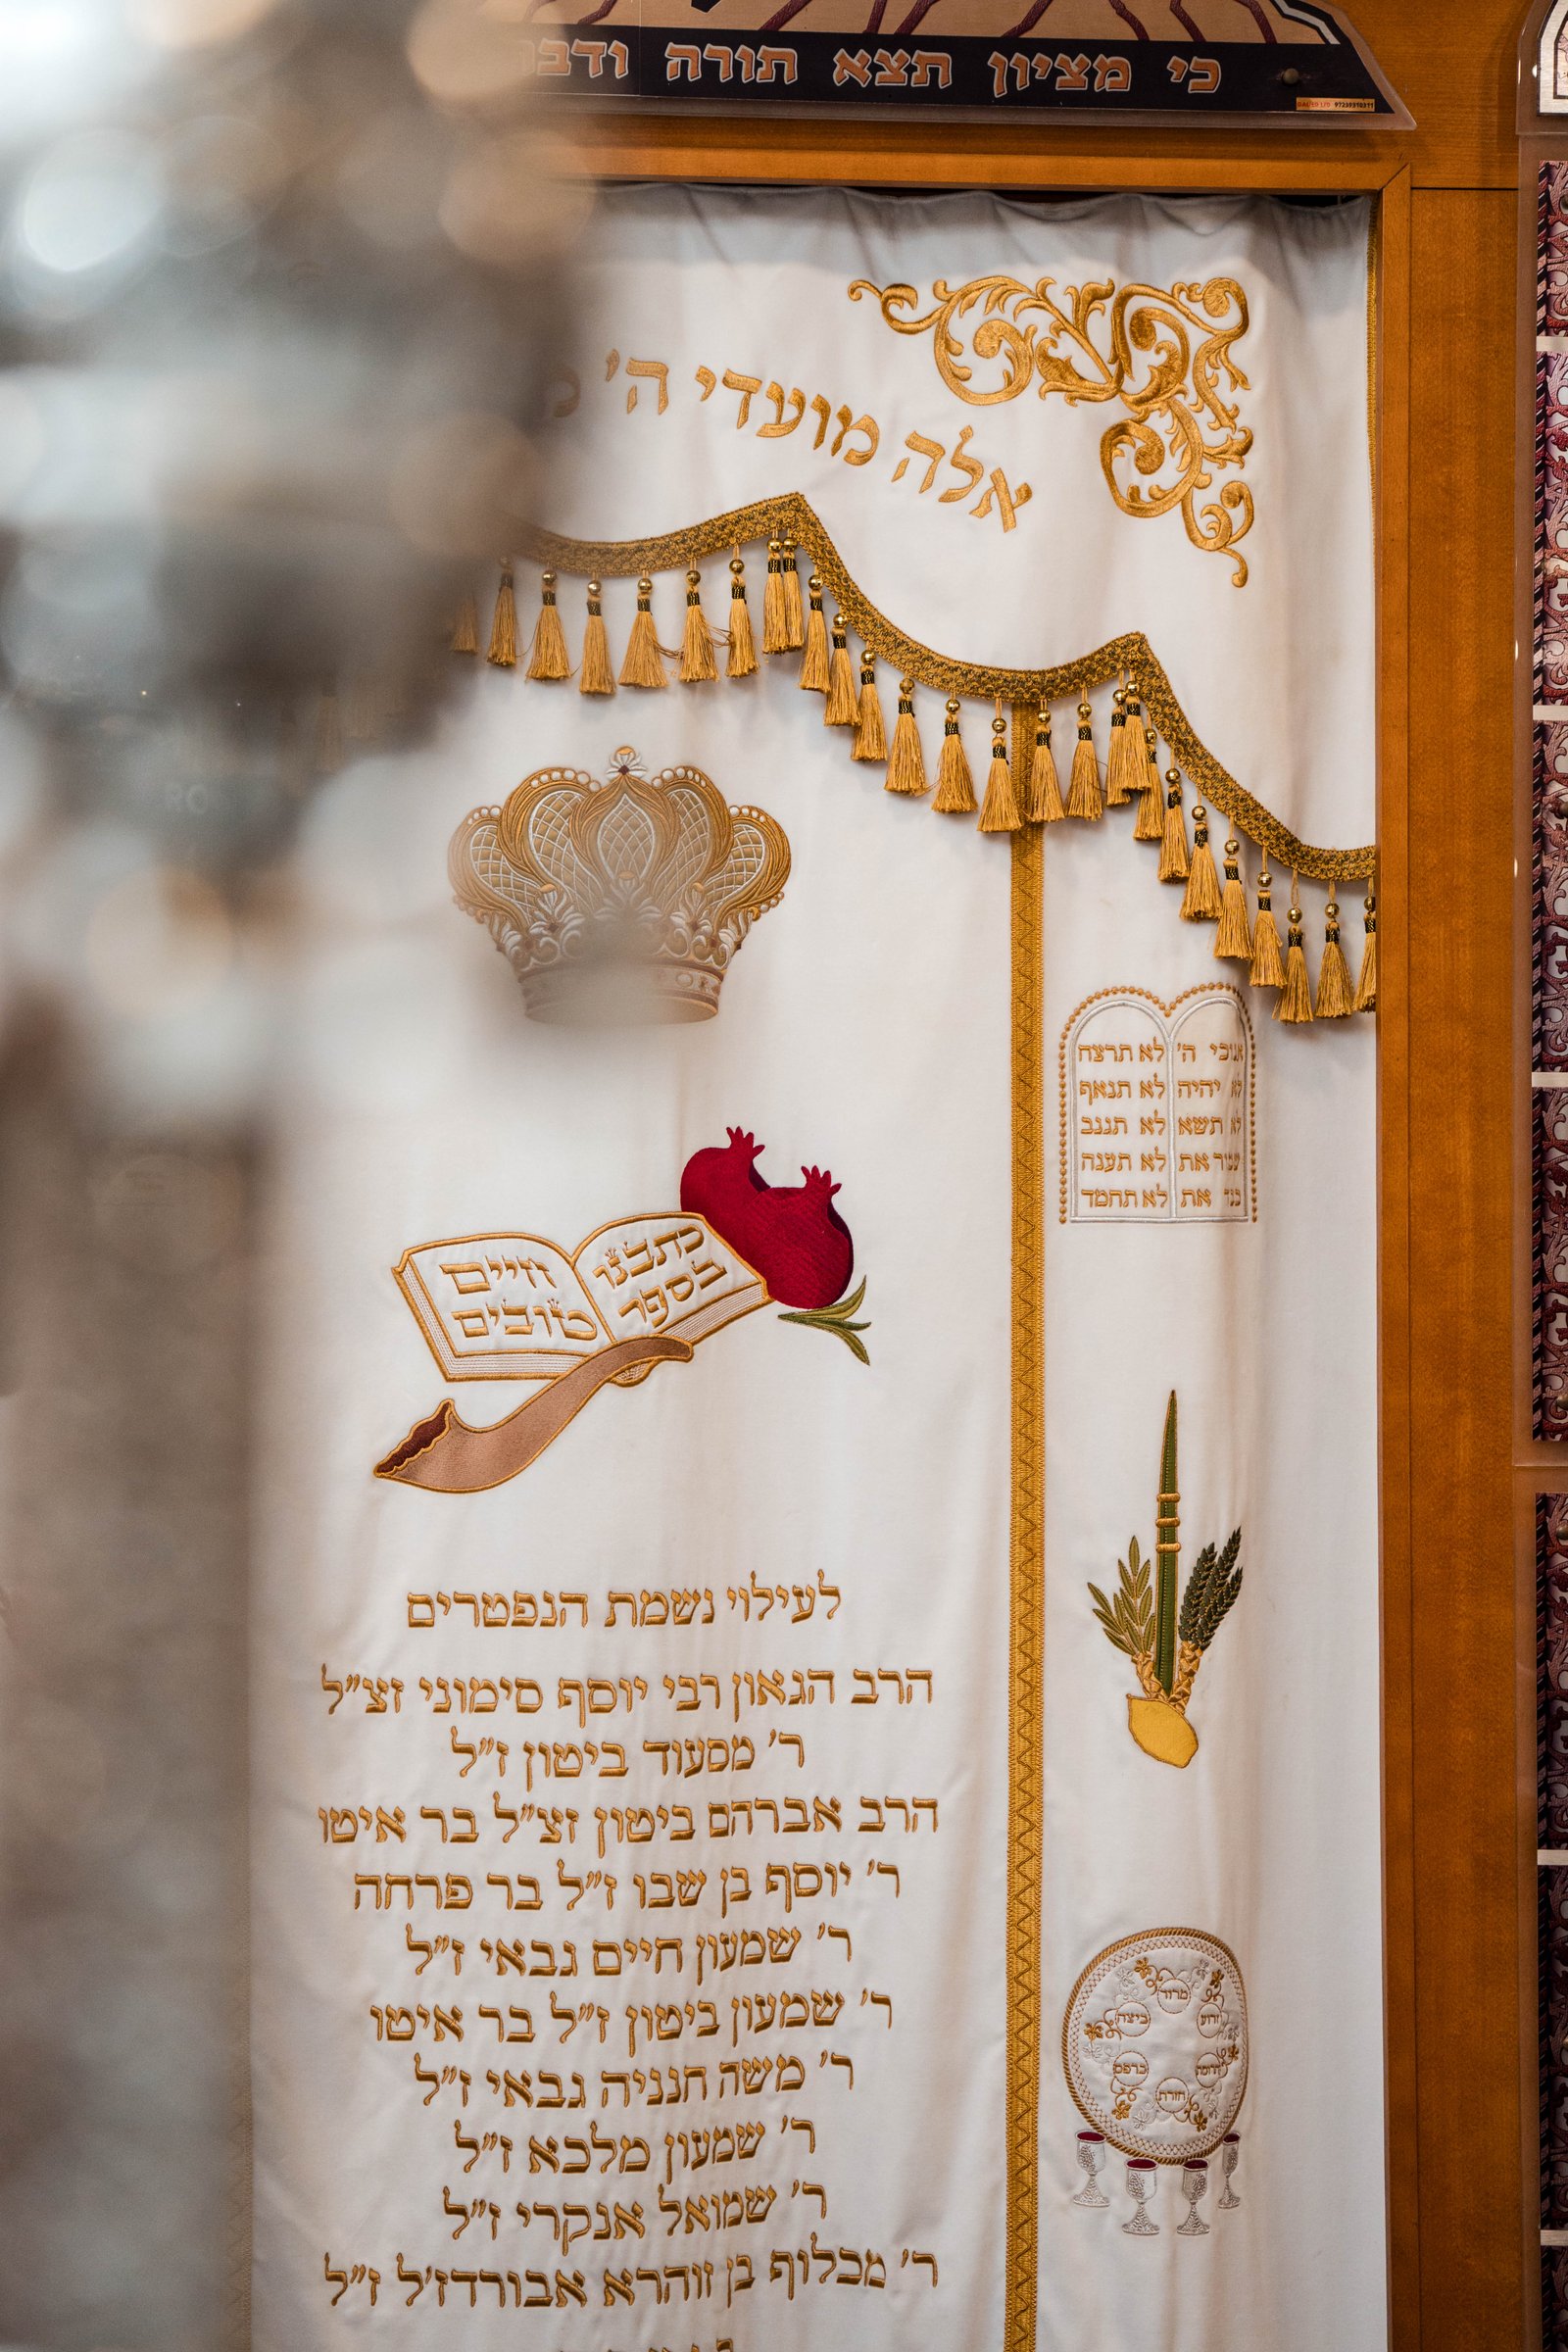 כי מציון תצא תורה
97239310311
אלה מועדי ה'
אנוכי ה'
לא יהיה
לא תשא
את
את
לא תרצח
לא תנאף
לא תגנב
לא תענה
לא תחמד
כתבנו
בספר
חיים
טובים
לעילוי נשמת הנפטרים
הרב הגאון רבי יוסף סימוני זצ"ל
ר' מסעוד ביטון ז"ל
הרב אברהם ביטון זצ"ל בר איטו
ר' יוסף בן שבו ז"ל בר פרחה
ר' שמעון חיים גבאי ז"ל
ר' שמעון ביטון ז"ל בר איטו
ר' משה חנניה גבאי ז"ל
ר' שמעון מלכא ז"ל
ר' שמואל אנקרי ז"ל
ר' מכלוף בן זוהרא אבורדז'ל ז"ל
מרור
ביצה
זרוע
כרפס
חזרת